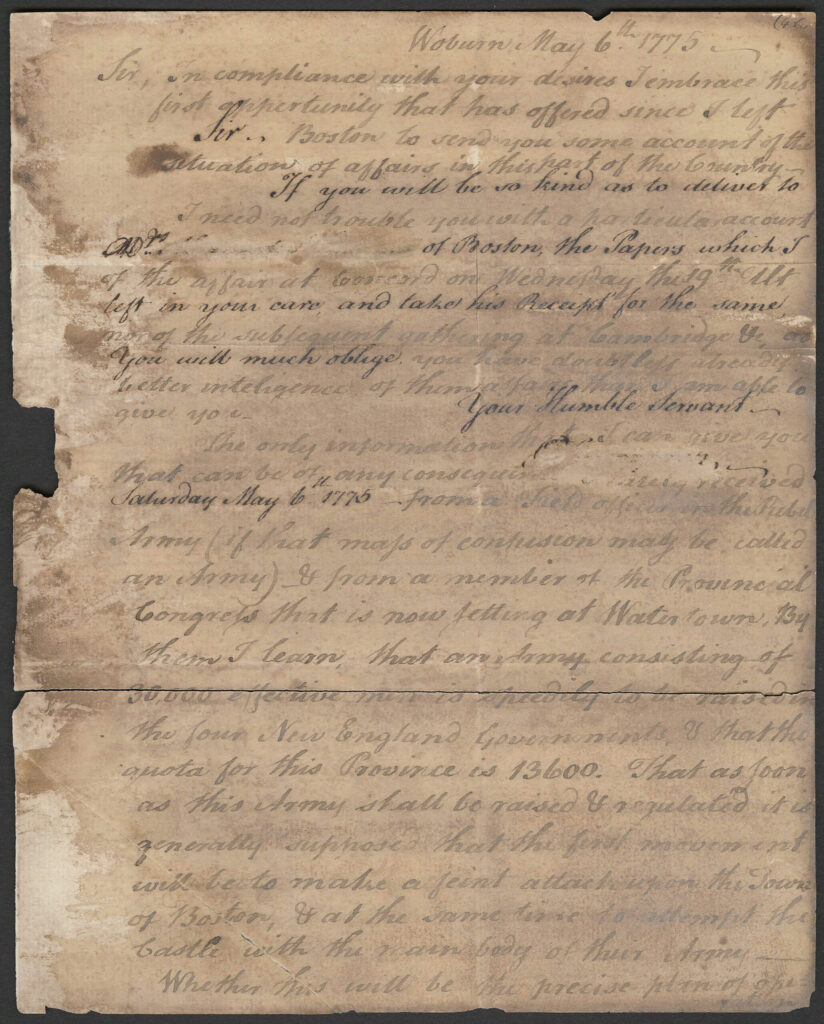 Woburn May 6th. 1775
Sir, In compliance with your desires I embrace this
first opportunity that has offered since I left
Sir. Boston to send you some account of the
situation of affairs in this part of the Country
If you will be so kind as to deliver to
I need not trouble you with a particular account
of Boston, the Papers which I
of the affair at Concord on Wednesday the 19th. Ult
left in your care, and take his Receipt for the same,
nor of the subsequent gathering at Cambridge &c
You will much oblige you have doubtless already
better inteligence of them affairs than I am able to
give you.
Your Humble Servant
The only information that I can give you
that can be of any consequence received
Saturday May 6th. 1775 from a Field officer in the Rebel
Army (if that mass of confusion may be called
an Army) & from a member of the Provincial
Congress that is now setting at Watertown. By
them I learn, that an Army consisting of
30,000 effective men is speedily to be raised in
the four New England Governments, & that the
quota for this Province is 13600. That as soon
as this Army shall be raised & regulated it is
generally suppose that the first movement
will be to make a feint attack upon the Town
of Boston, & at the same time to attempt the
Castle with the main body of their Army
Whether this will be the precise plan of ope-